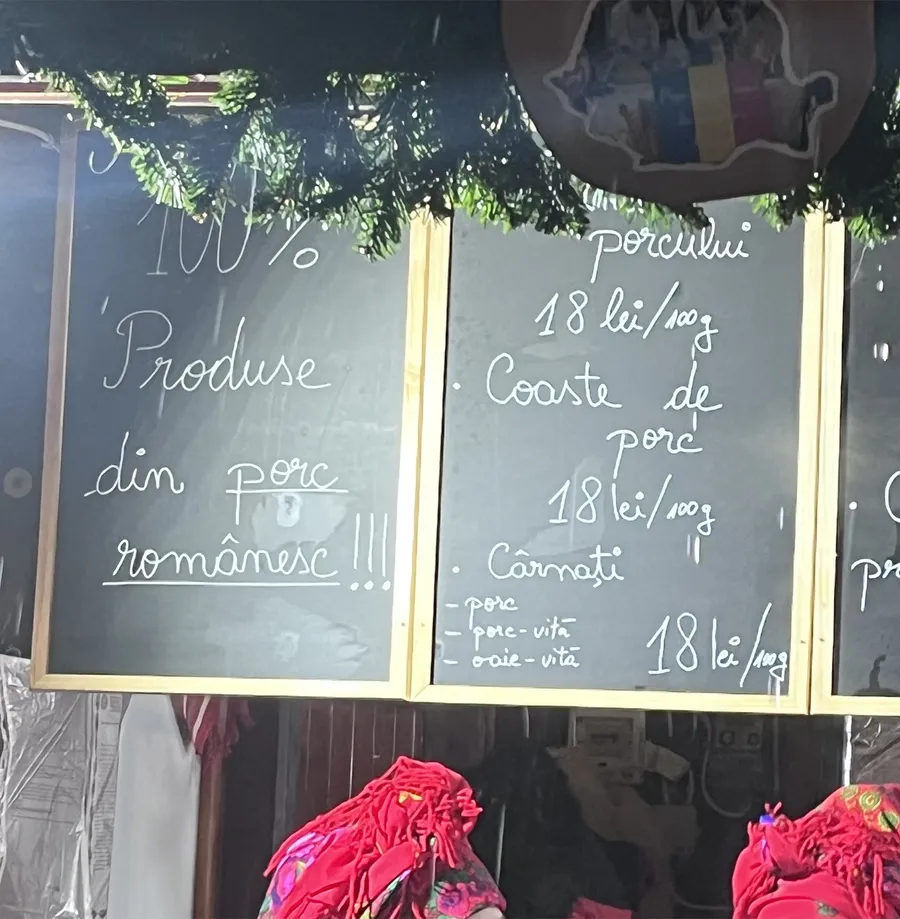 100%
Produse
din porc
românesc!!!
porcului
18 lei/100g
· Coaste de
porc
18 lei/100g
· Cârnați
- porc
- porc-vită
- oaie-vită
18 lei/100g